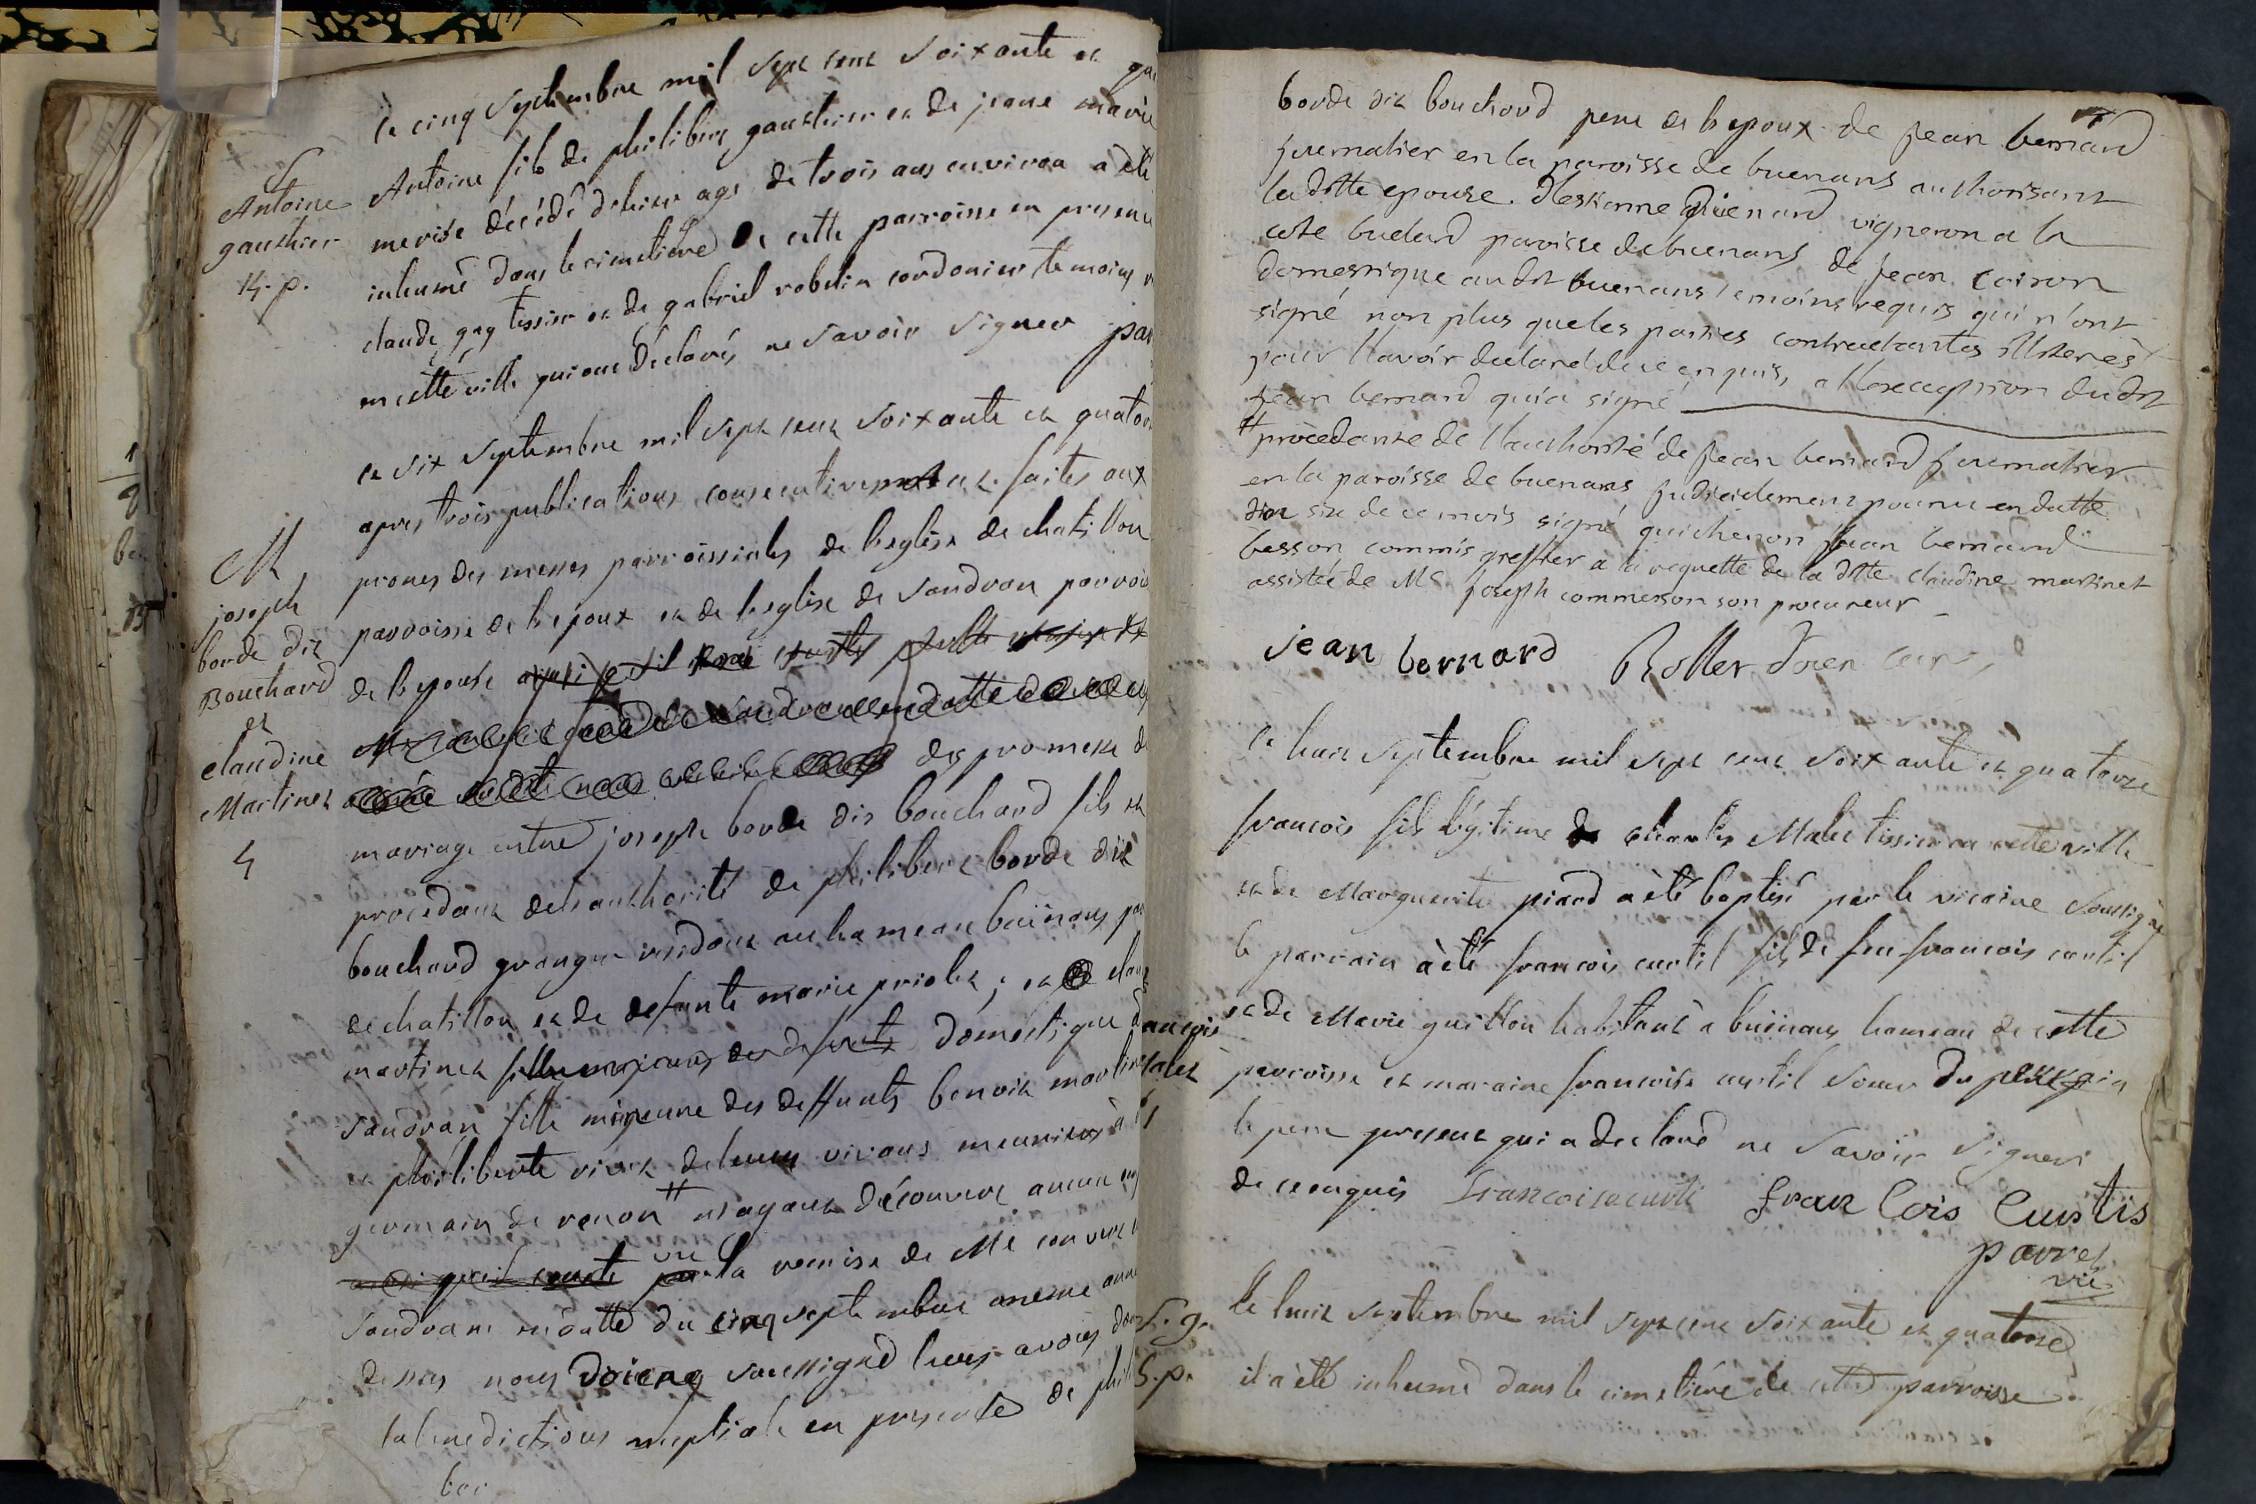 Le cinq septembre mil sept cent soixante et qua
Antoine fils de philibert gauthier et de jeane marie
merité décédé dehier agé de trois ans environ a été
inhumé dans le cimetiére de cette parroisse en presence
claude gay tissier et de gabriel robelin cordonier temoins
en cette ville qui ont déclarés ne savoir signer par
S
Antoine
gauthier
14. p.
ce six septembre mil sept cent soixante et quator
apres trois publications consecutivement faites aux
prones des messes parroissiales de l'eglise de chatillon
parroisse de l'epoux et de l'eglise de sandran parrois
de l'epouse
des promesse de
mariage entre joseph borde dit bouchard fils et
procedant de l'authorité de philibert borde dit
bouchard granger residant au hameau buïnans par
de chatillon et de defunte marie priolet ; et clau
martinet domestique
sandran fille mineure des deffunts benoit martinet
et philiberte vivet de leurs vivans meuniers à
germain de renon # n'ayant découvert aucun
vu la remise de Me couvert
sandrans en datte du cinq septembre meme anné
dessus nous Doieng soussigné leurs avons don
la benedictions nuptiale en presence de phili
bor
M
joseph
borde dit
Bouchard
et
claudine
Martinet
4
borde dit bouchard pere de l'epoux de jean bernard
journalier en la paroisse de buenans authorisant
la ditte epouse. d'estienne vigneron a la
cote paroisse de buenans de jean coiron
domestique audit buenans temoins requis qui n'ont
signé non plus que les parties contractantes illiterés
pour l'avoir declaré de ce enquis, a l'exception dudit
jean bernard qui a signé
# procedante de l'authorité de jean bernard journalier
en la paroisse de buenans judiciellement pourvu en datte
du six de ce mois signé quichenon jean bernard
besson commis greffier a la requette de la ditte claudine martinet
assistée de Me joseph commerson son procureur
jean bernard Rollet doien curé
Le huit septembre mil sept cent soixante et quatorze
francois fils légitime de charles Malet tissier en cette ville
et de Marguerite piard a été baptisé par le vicaire soussigné
le parrain à été francois curtil fils de feu francois curtil
et de Marie guillon habitant à buïnans hameau de cette
parroisse et maraine francoise curtil soeur du parrain
le pere present qui a declaré ne savoir signer
de ce enquis francoise curti fran Cois Curtis
parret
vic
ancois
malet
Le huit septembre mil sept cent soixante et quatorze
il a été inhumé dans le cimetiére de cette parroisse
S. g.
S. p.